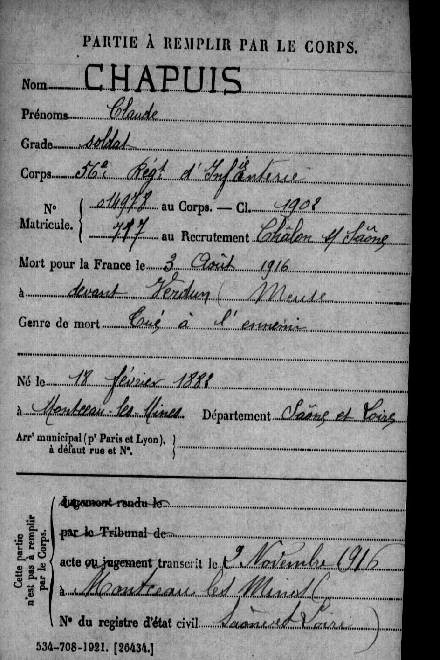 PARTIE À REMPLIR PAR LE CORPS.
Nom CHAPUIS
Prénoms Claude
Grade soldat
Corps 56e Régt d'Infanterie
N° Matricule. { 014978 au Corps. — Cl. 1908
797 au Recrutement Châlon s/ Saône
Mort pour la France le 3 Août 1916
à devant Verdun (Meuse
Genre de mort Tué à l'ennemi
Né le 18 février 1888
à Montceau-les-Mines Département Saône et Loire
Arr' municipal (p' Paris et Lyon), à défaut rue et N°. }
Cette partie n'est pas à remplir par le Corps. {
Jugement rendu le
par le Tribunal de
acte ou jugement transcrit le 9 Novembre 1916
à Montceau les Mines (
N° du registre d'état civil Saône et Loire )
534-708-1921. [26434.]